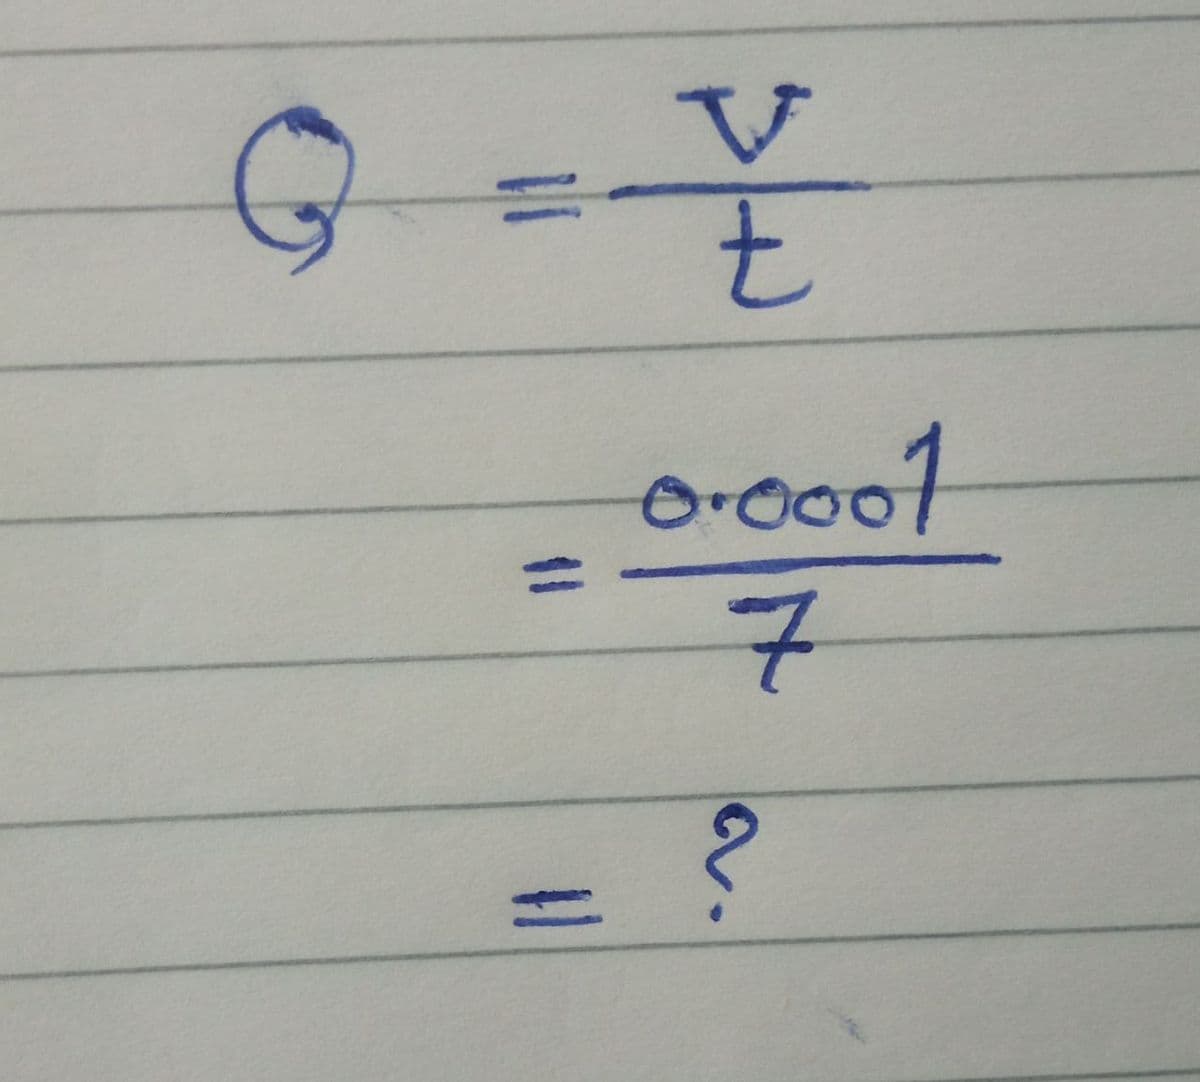 Q = V/t
= 0.0001/7
= ?